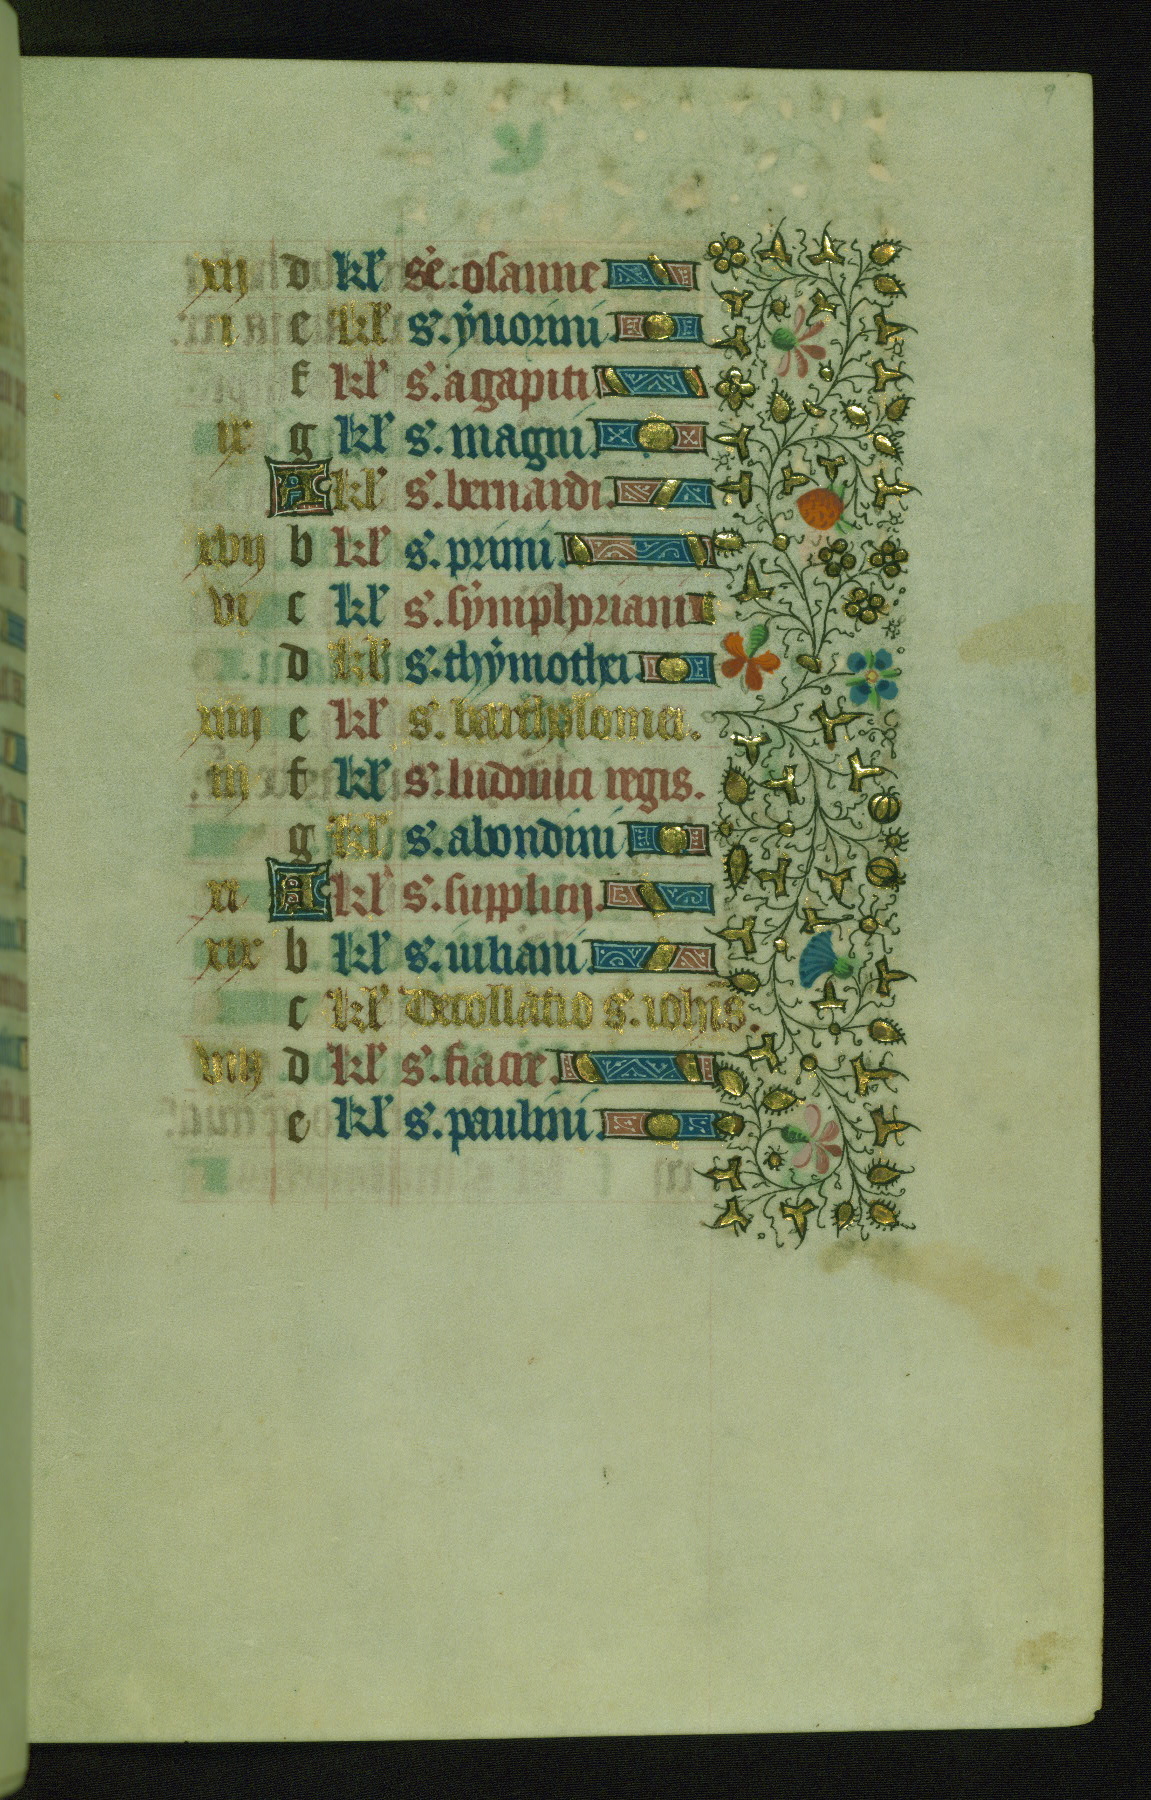 9
xij d kl' sc̄e. osanne
i e kl' s. ẏuorini
f kl' s. agapiti
ix g kl' s. magni.
A kl' s. bernardi.
xvij b kl' s. primi.
vi c kl' s. sẏmphoriani
d kl' s. thẏmothei
xiiij e kl' s. bartholomei.
iij f kl' s. ludouici regis.
g kl' s. abondini
xi A kl' s. supplicij.
xix b kl' s. iuliani.
c kl' Decollatio s. ioh̄is.
viij d kl' s. fiacre.
e kl' s. paulini.